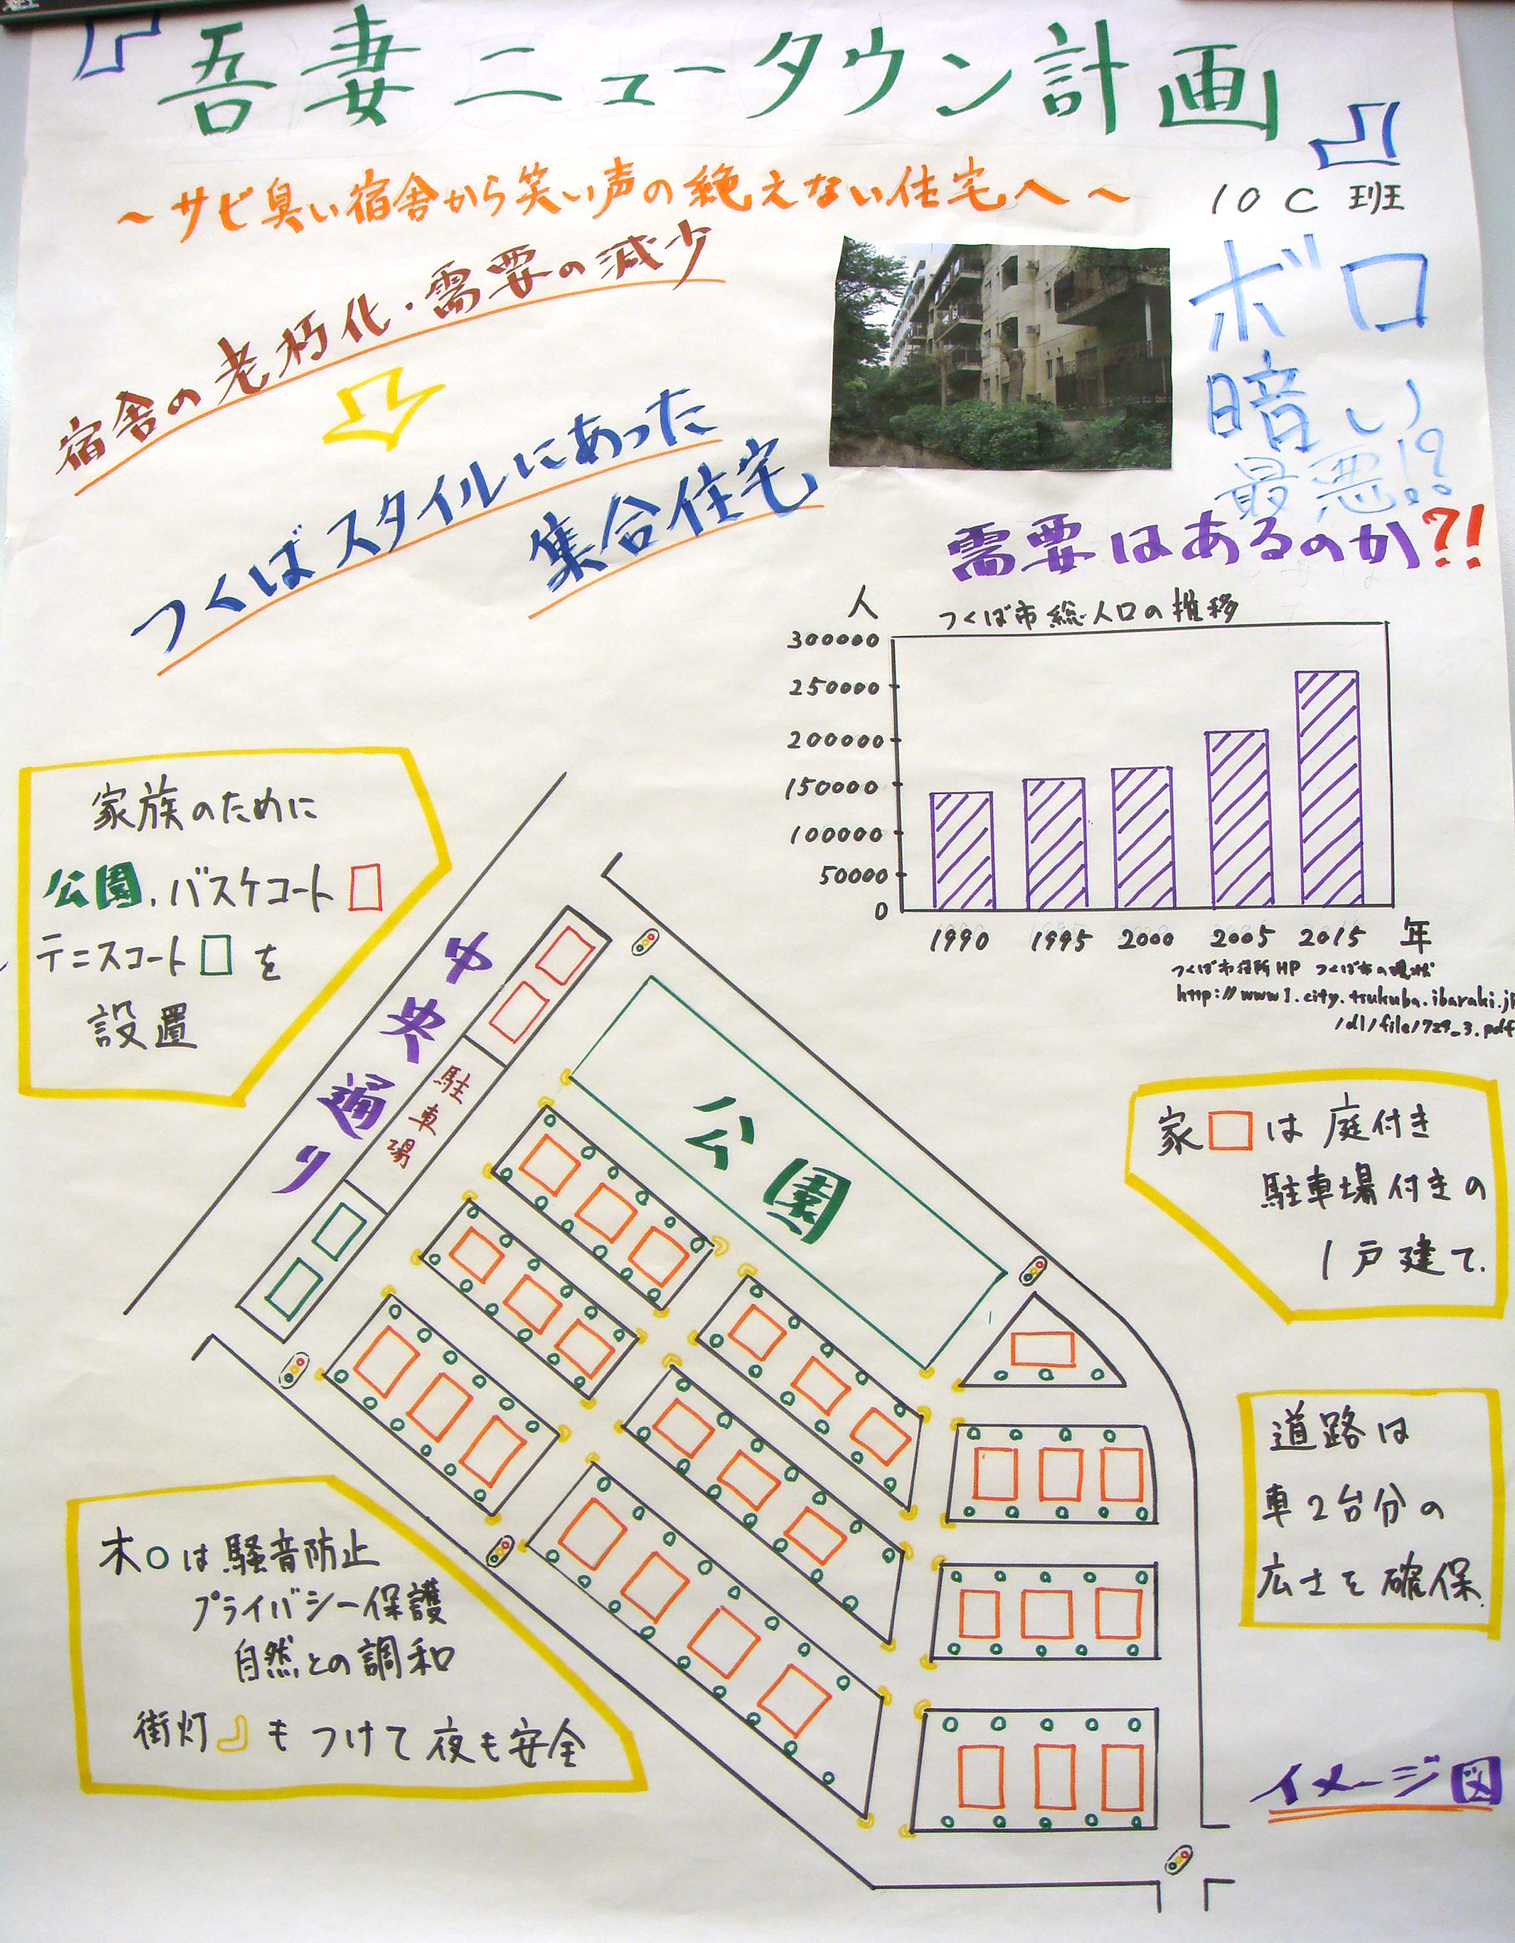 『吾妻ニュータウン計画』
～サビ臭い宿舎から笑い声の絶えない住宅へ～
10C 班
宿舎の老朽化・需要の減少
つくばスタイルにあった
集合住宅
ボロ
暗い
最悪!?
需要はあるのか?!
人
つくば市総人口の推移
300000
250000
200000
150000
100000
50000
0
1990 1995 2000 2005 2015 年
つくば市役所HP つくば市の現状
http://www1.city.tsukuba.ibaraki.jp
/dl/file/729_3.pdf
家族のために
公園、バスケコート
テニスコート を
設置
中央通り
駐車場
公園
家 は 庭付き
駐車場付きの
1戸建て.
道路は
車2台分の
広さを確保.
木○は騒音防止
プライバシー保護
自然との調和
街灯 もつけて夜も安全
イメージ図